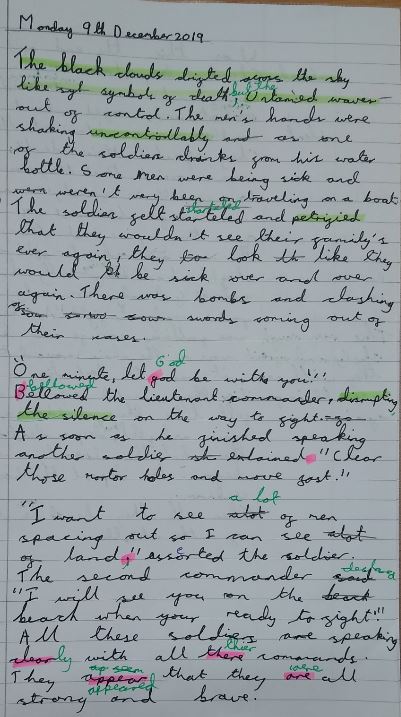 Monday 9th December 2019
The black clouds drifted across the sky
but the
like syl symbols of death, Untamed waves
out of control. The men's hands were
shaking uncontrollably and as one
of the soldiers drinks from his water
bottle. Some men were being sick and
wern weren't very been on traveling on a boat
startled
The soldier felt starteled and petrified
that they wouldn't see their family's
ever again, they to look th like they
would be sick over and over
again. There was bombs and clashing
swords coming out of
their cases.
God
"One, minute, let god be with you!"
bellowed
Bellowed the lieutenant commander, disrupting
the silence on the way to fight.
As soon as he finished speaking
another soldier exlained "Clear
those mortor holes and move fast."
a lot
"I want to see alot of men
spacing out so I can see alot
of land," assorted the soldier.
The second commander said
"I will see you on the
beach when your ready to fight!"
All these soldiers are speaking
their
clearly with all there commands.
were
They appear that they are all
appeared
strong and brave.